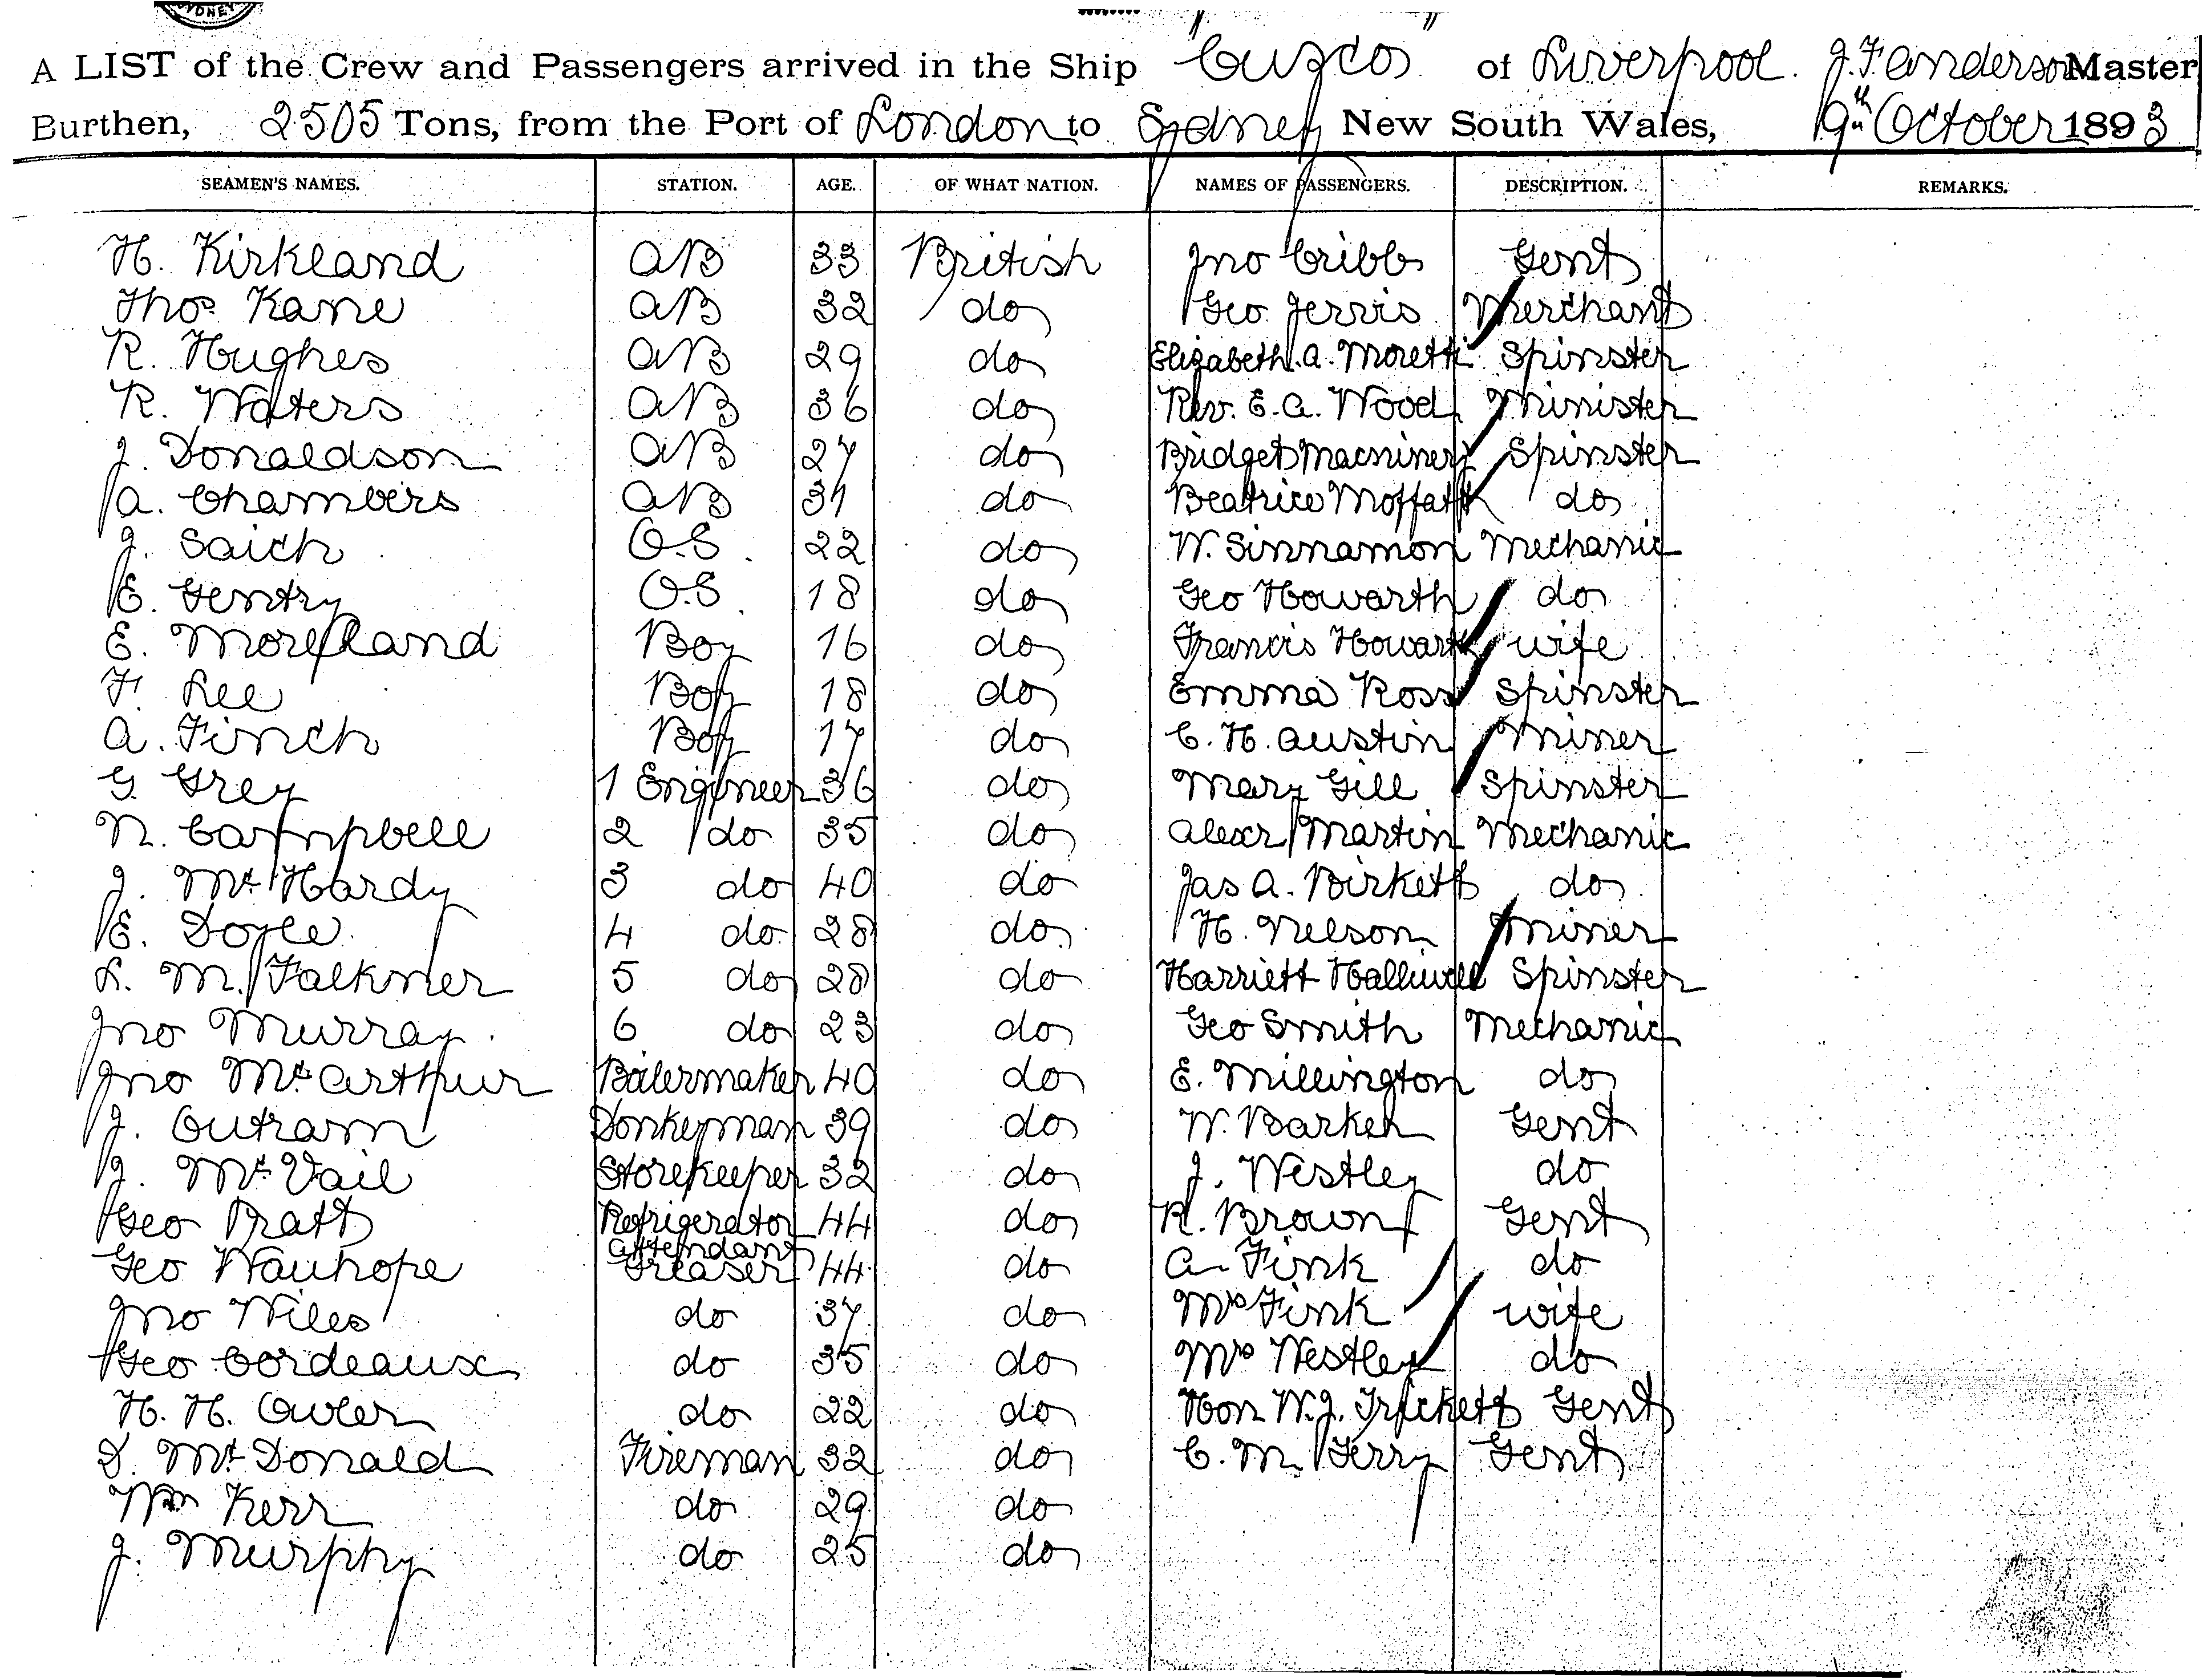 SYDNEY
A LIST of the Crew and Passengers arrived in the Ship "Cuzco" of Liverpool. J. F. Anderson Master
Burthen, 2505 Tons, from the Port of London to Sydney New South Wales, 9th October 1893
SEAMEN'S NAMES. STATION. AGE. OF WHAT NATION. NAMES OF PASSENGERS. DESCRIPTION. REMARKS.
H. Kirkland AB 33 British Jno Cribb Gent
Thos Kane AB 32 do Geo Jervis Merchant
R. Hughes AB 29 do Elizabeth. A. Moretti Spinster
R. Waters AB 36 do Rev. E. A. Wood Minister
J. Donaldson AB 27 do Bridget Macninery Spinster
A. Chambers AB 31 do Beatrice Moffatt do
J. Saich O.S. 22 do W. Sinnamon Mechanic
E. Gentry O.S. 18 do Geo Howarth do
E. Moreland Boy 16 do Francis Howarth wife
F. Lee Boy 18 do Emma Ross Spinster
A. Finch Boy 17 do C. H. Austin Miner
G. Grey 1 Engineer 36 do Mary Gill Spinster
N. Campbell 2 do 35 do Alexr Martin Mechanic
J. Mc Hardy 3 do 40 do Jas A. Birkett do
E. Doyle 4 do 28 do H. Nelson Miner
L. M. Falkner 5 do 28 do Harriett Halliwell Spinster
Jno Murray 6 do 23 do Geo Smith Mechanic
Jno Mc Arthur Boilermaker 40 do E. Millington do
J. Outram Donkeyman 39 do W. Barker Gent
J. Mc Vail Storekeeper 32 do J. Westley do
Geo Pratt Refrigerator Attendant 44 do R. Brown Gent
Geo Wauhope Greaser 44 do A. Fink do
Jno Wiles do 37 do Mrs Fink wife
Geo Cordeaux do 35 do Mrs Westley do
H. H. Owler do 22 do Hon W. J. Trickett Gent
D. Mc Donald Fireman 32 do C. M. Terry Gent
Wm Kerr do 29 do
J. Murphy do 25 do